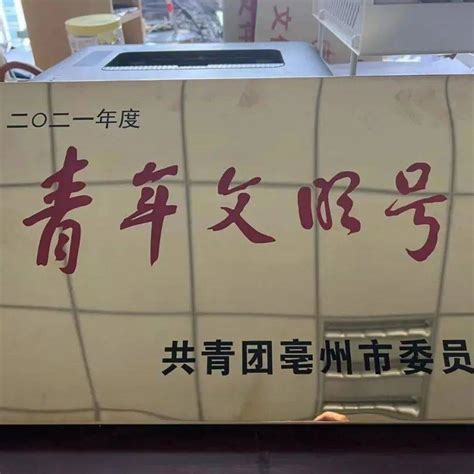 二〇二一年度
青年文明号
共青团亳州市委员